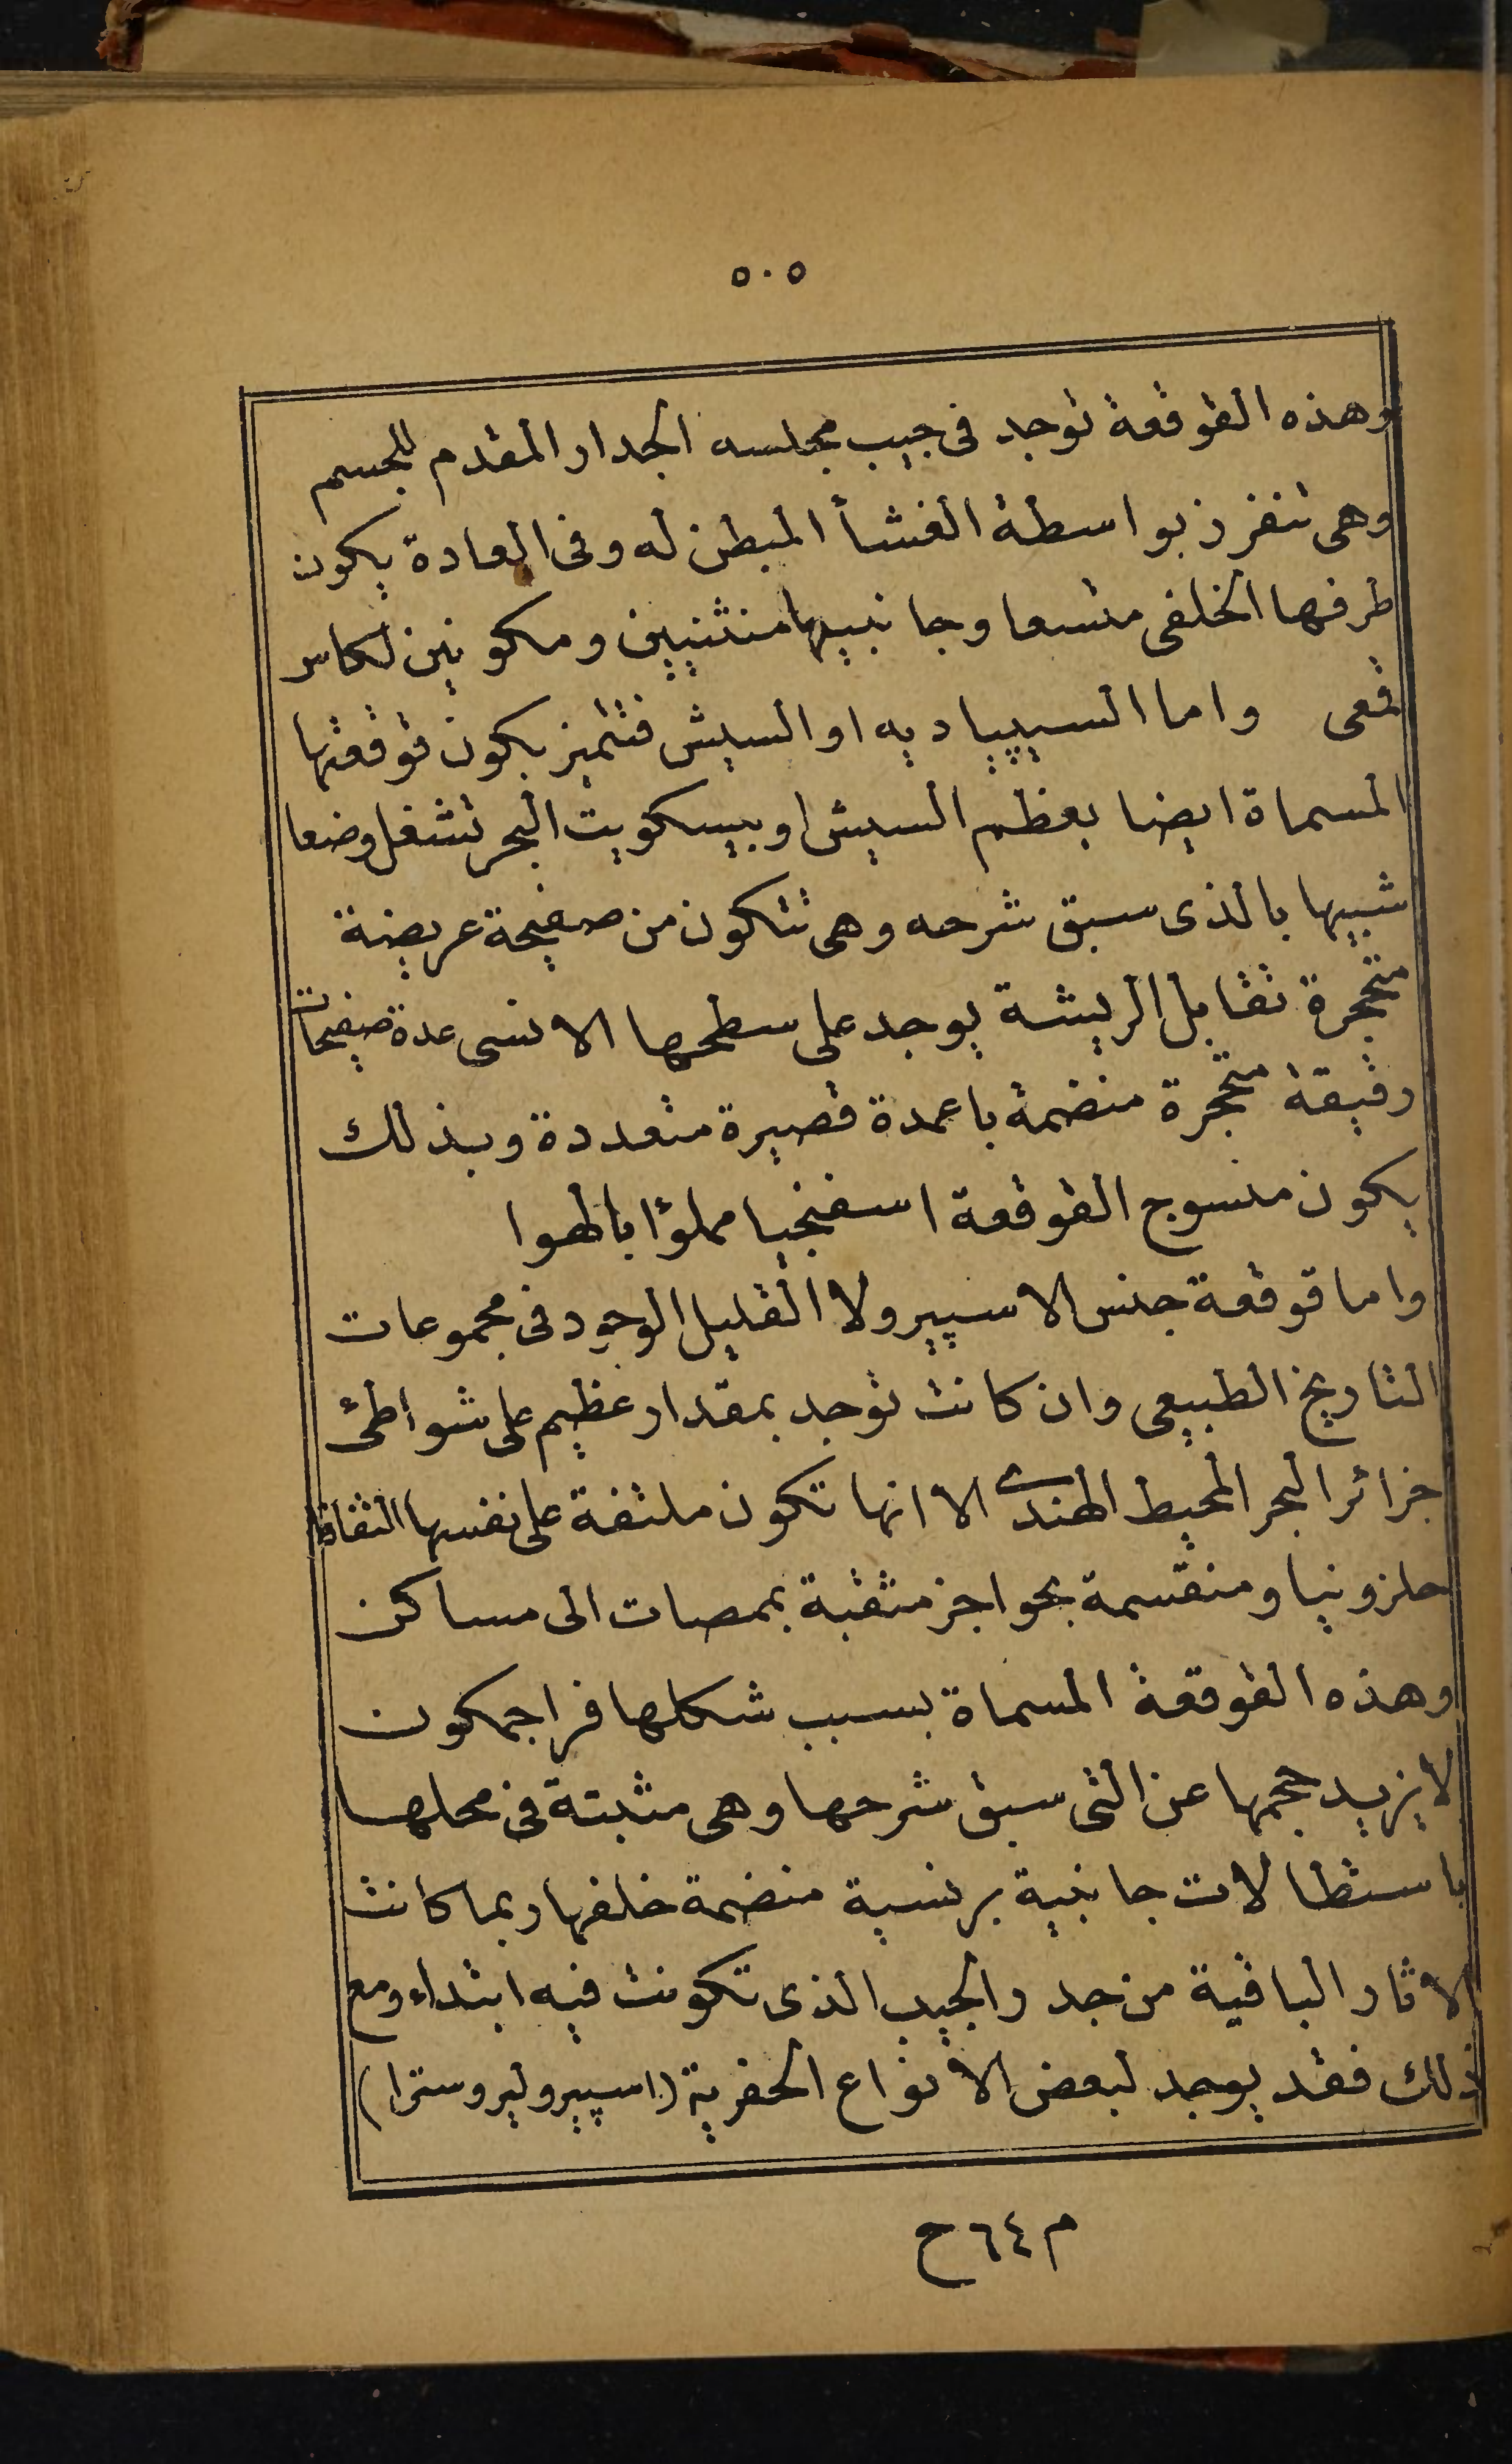 ٥٠٥
وهذه القوقعة توجد فى جيب مجلسه الجدار المقدم للجسم
وهى تنفرز بواسطة الغشأ المبطن له وفى العادة يكون
طرفها الخلفى متسعا وجانبيها منثنيين ومكونين لكاس
قمعى واما السيپياديه او السيش فتتميز بكون قوقعتها
المسماة ايضا بعظم السيش او بيسكويت البحر تشغل وضعا
شبيها بالذى سبق شرحه وهى تتكون من صفيحة عريضة
متحجرة تقابل الريشة يوجد على سطحها الانسى عدة صفيحات
رقيقة متحجرة منضمة باعمدة قصيرة متعددة وبذلك
يكون منسوج القوقعة اسفنجيا مملؤا بالهوا
واما قوقعة جنس الاسپيرولا القليل الوجود فى مجموعات
التاريخ الطبيعى وان كانت توجد بمقدار عظيم على شواطئ
جزائر البحر المحيط الهندى الا انها تكون ملتفة على نفسها التفافا
حلزونيا ومنقسمة بحواجز مثقبة بممصات الى مساكن
وهذه القوقعة المسماة بسبب شكلها قراجمكون
لا يزيد حجمها عن التى سبق شرحها وهى مثبتة فى محلها
باستطالات جانبية برنسية منضمة خلفها ربما كانت
الاثار الباقية من جدر الجيب الذى تكونت فيه ابتداء ومع
ذلك فقد يوجد لبعض الانواع الحفرية (اسپيروليروسترا)
م ٦٤ ح